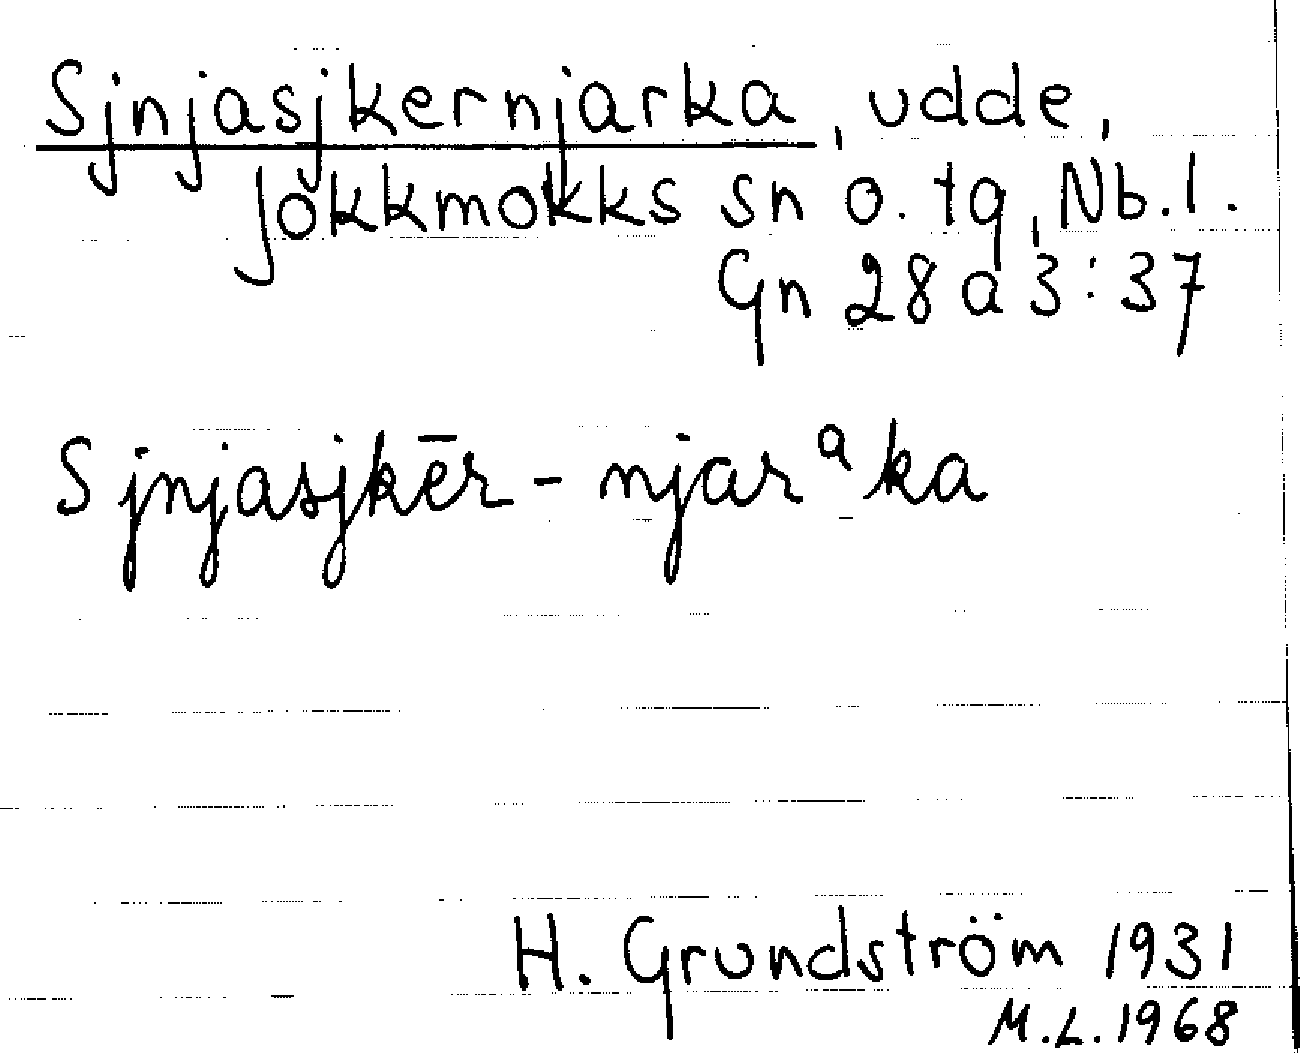 Sjnjasjkernjarka, udde,
Jokkmokks sn o. tg, Nb. l.
Gn 28 a 3:37
Sjnjasjkēr - njarᵃka
H. Grundström 1931
M.L. 1968